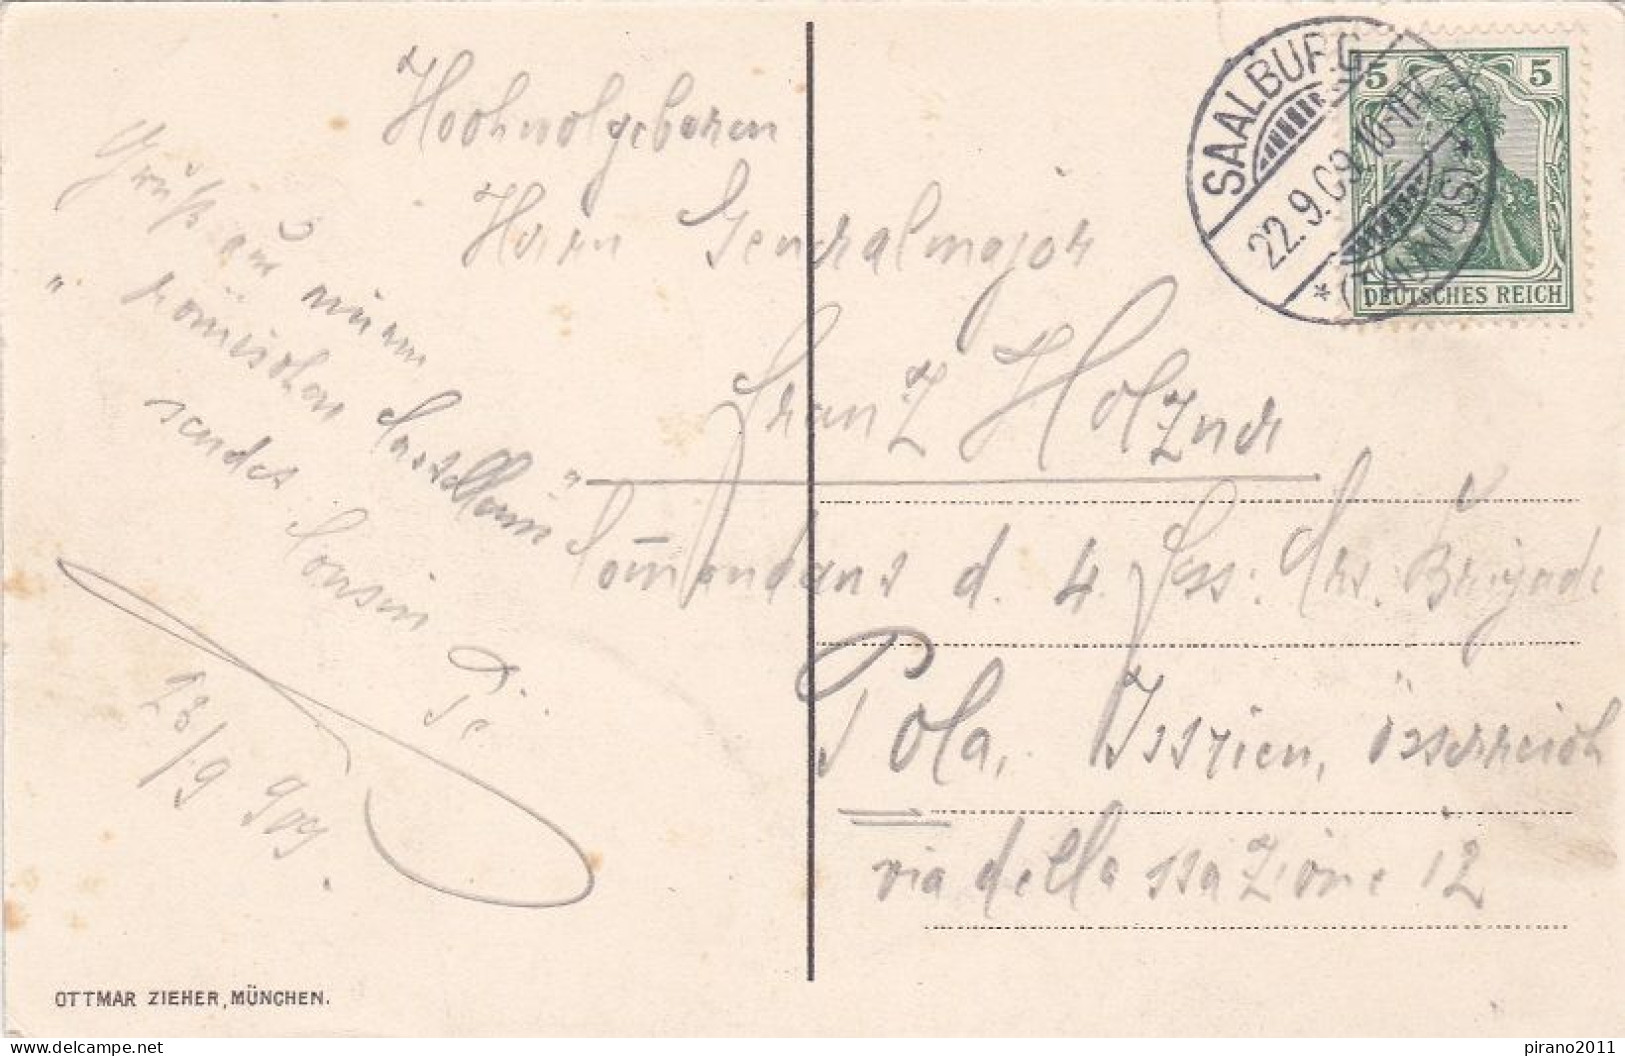 Hochwolgeboren
Herrn Generalmajor
Franz Holzner
Commandant d. 4. Fess: Art. Brigade
Pola, Istrien, Österreich
via della stazione 12
Gruß aus einem
"römischen Castellum"
sendet Cousin
23/9 909.
SAALBURG
22.9.09.10-11V.
* (TAUNUS) *
5 5
DEUTSCHES REICH
OTTMAR ZIEHER, MÜNCHEN.
delcampe.net
pirano2011